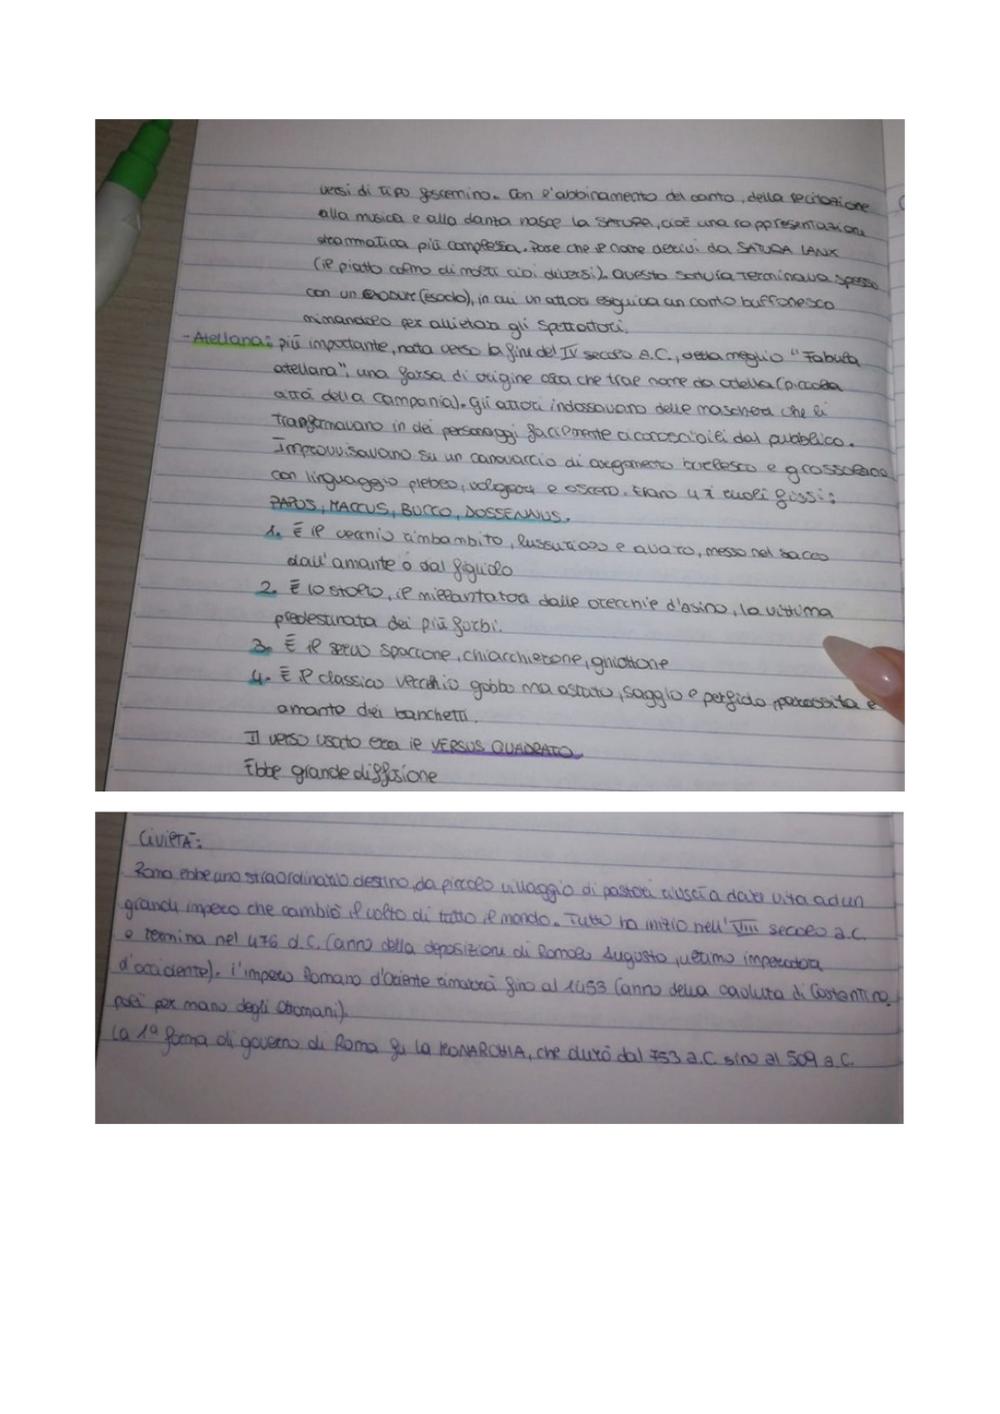 versi di tipo fescennino. Con l'abbinamento del canto, della recitazione
alla musica e alla danza nasce la SATURA, cioè una rappresentazione
drammatica più complessa. Pare che il nome derivi da SATURA LANX
(il piatto colmo di molti cibi diversi). Questa satura terminava spesso
con un (esodo), in cui un attore eseguiva un canto buffonesco
mimandolo per allietare gli spettatori.
- Atellana: più importante, nata verso la fine del IV secolo a.C., detta meglio "Fabula
atellana", una farsa di origine osca che trae nome da atella (piccola
città della Campania). Gli attori indossavano delle maschere che li
trasformavano in dei personaggi facilmente riconoscibili dal pubblico.
Improvvisavano su un canovaccio di argomento burlesco e grossolano
con linguaggio plebeo, volgare e osceno. Erano 4 i ruoli fissi:
PAPUS, MACCUS, BUCCO, DOSSENNUS.
1. È il vecchio rimbambito, lussurioso e avaro, messo nel sacco
dall'amante o dal figliolo
2. È lo stolto, il millantatore dalle orecchie d'asino, la vittima
predestinata dei più furbi.
3. È il servo spaccone, chiacchierone, ghiottone
4. È il classico vecchio gobbo ma astuto, saggio e perfido, parassita e
amante dei banchetti.
Il verso usato era il VERSUS QUADRATO
Ebbe grande diffusione
CIVILTÀ:
Roma ebbe uno straordinario destino, da piccolo villaggio di pastori riuscì a dare vita ad un
grande impero che cambiò il volto di tutto il mondo. Tutto ha inizio nell'VIII secolo a.C.
e termina nel 476 d.C. (anno della deposizione di Romolo Augusto, ultimo imperatore
d'occidente). L'impero Romano d'Oriente rimarrà fino al 1453 (anno della caduta di Costantino
poli per mano degli Ottomani).
La 1ª forma di governo di Roma fu la MONARCHIA, che durò dal 753 a.C. sino al 509 a.C.